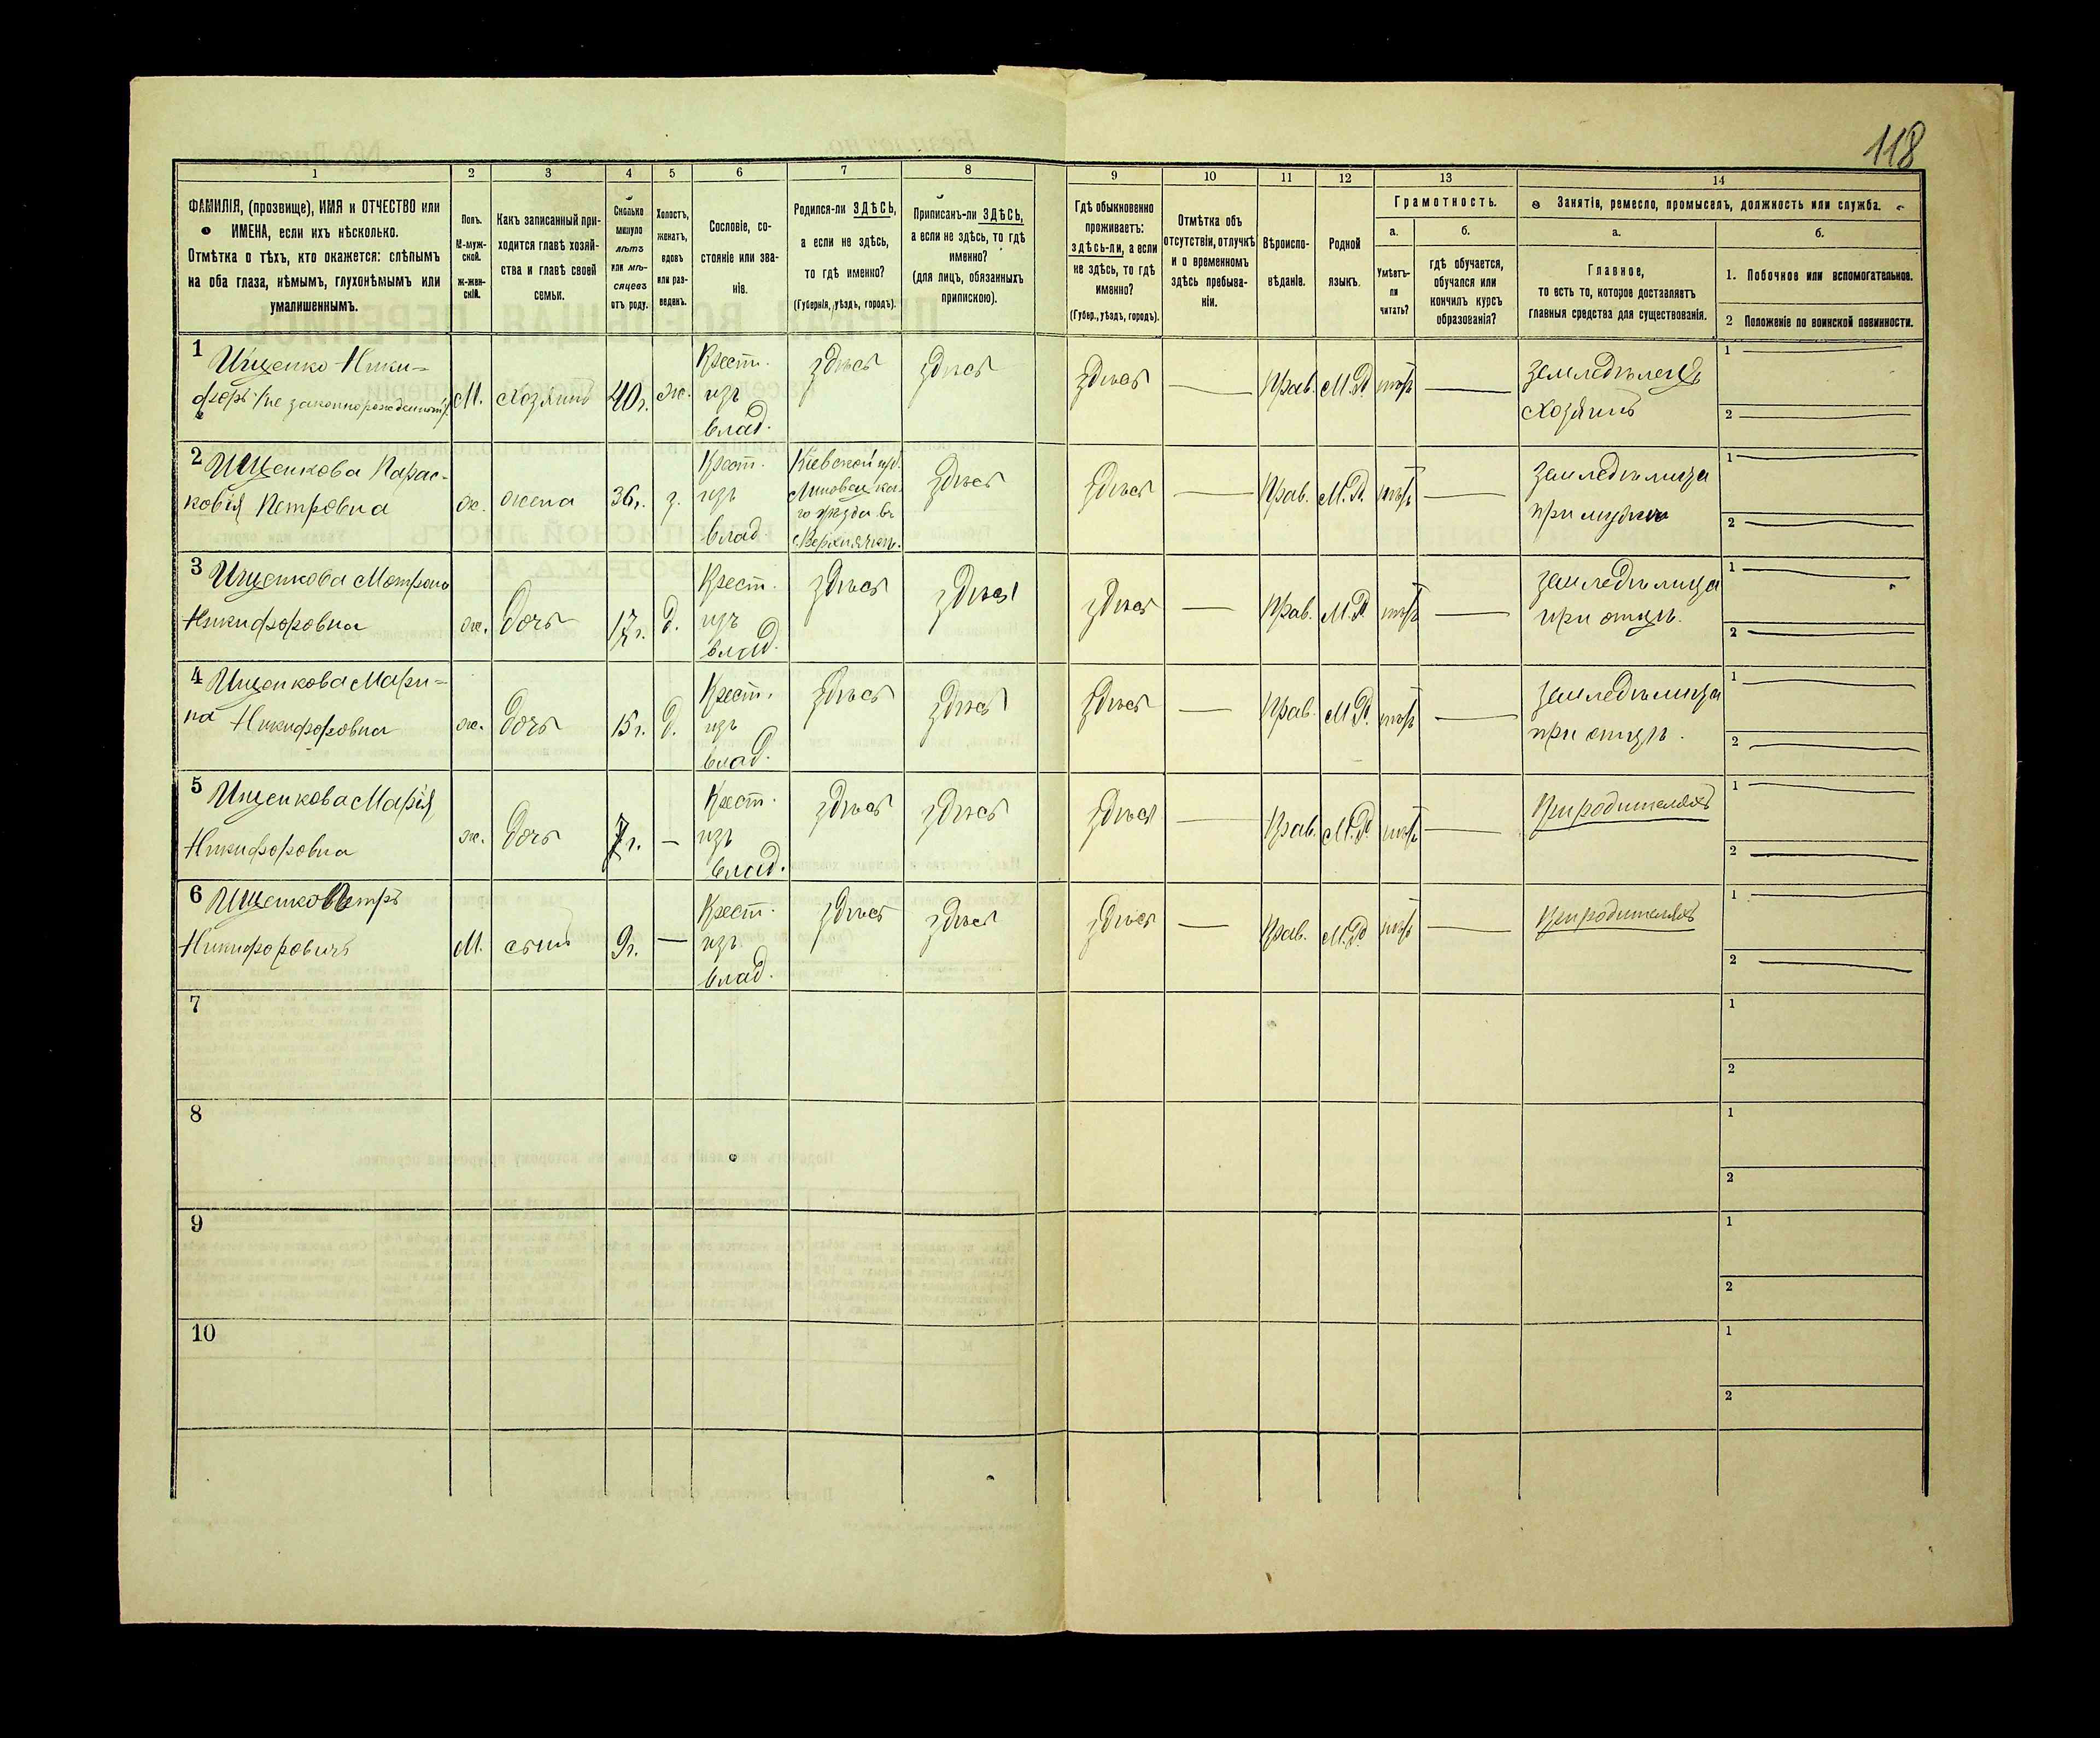 118
1 2 3 4 5 6 7 8 9 10 11 12 13 14
ФАМИЛІЯ, (прозвище), ИМЯ и ОТЧЕСТВО или
ИМЕНА, если ихъ нѣсколько.
Отмѣтка о тѣхъ, кто окажется: слѣпымъ
на оба глаза, нѣмымъ, глухонѣмымъ или
умалишеннымъ.
Полъ.
М-муж-
ской.
ж-жен-
скій.
Какъ записанный при-
ходится главѣ хозяй-
ства и главѣ своей
семьи.
Сколько
минуло
лѣтъ
или мѣ-
сяцевъ
отъ роду.
Холостъ,
женатъ,
вдовъ
или раз-
веденъ.
Сословіе, со-
стояніе или зва-
ніе.
Родился-ли ЗДѢСЬ,
а если не здѣсь,
то гдѣ именно?
(Губернія, уѣздъ, городъ).
Приписанъ-ли ЗДѢСЬ,
а если не здѣсь, то гдѣ
именно?
(для лицъ, обязанныхъ
припискою).
Гдѣ обыкновенно
проживаетъ:
здѣсь-ли, а если
не здѣсь, то гдѣ
именно?
(Губер., уѣздъ, городъ).
Отмѣтка объ
отсутствіи, отлучкѣ
и о временномъ
здѣсь пребыва-
ніи.
Вѣроиспо-
вѣданіе.
Родной
языкъ.
Грамотность.
а.
Умѣетъ-
ли
читать?
б.
гдѣ обучается,
обучался или
кончилъ курсъ
образованія?
Занятіе, ремесло, промыселъ, должность или служба.
а.
Главное,
то есть то, которое доставляетъ
главныя средства для существованія.
б.
1. Побочное или вспомогательное.
2 Положеніе по воинской повинности.
1 Ищенко Ники-
форъ (незаконнорожденный)
М. хозяинъ 40 г. ж.
Крест.
изъ
влад.
здѣсь здѣсь здѣсь — Прав. М.Р. нѣтъ —
земледѣлецъ
хозяинъ
1 —
2 —
2 Ищенкова Парас-
ковія Петровна
ж. жена 36 г. з.
Крест.
изъ
влад.
Кіевской губ.
Липовецка-
го уѣзда въ
здѣсь здѣсь — Прав. М.Р. нѣтъ —
земледѣлица
при мужѣ
1 —
2 —
3 Ищенкова Матрона
Никифоровна
ж. дочь 17 г. д.
Крест.
изъ
влад.
здѣсь здѣсь здѣсь — Прав. М.Р. нѣтъ —
земледѣлица
при отцѣ.
1 —
2 —
4 Ищенкова Мари-
на Никифоровна
ж. дочь 15 г. д.
Крест.
изъ
влад.
здѣсь здѣсь здѣсь — Прав. М.Р. нѣтъ —
земледѣлица
при отцѣ.
1 —
2 —
5 Ищенкова Марія
Никифоровна
ж. дочь 7 г. —
Крест.
изъ
влад.
здѣсь здѣсь здѣсь — Прав. М.Р. нѣтъ —
при родителяхъ
1 —
2 —
6 Ищенко Петръ
Никифоровичъ
М. сынъ 9 г. —
Крест.
изъ
влад.
здѣсь здѣсь здѣсь — Прав. М.Р. нѣтъ —
при родителяхъ
1 —
2 —
7
1
2
8
1
2
9
1
2
10
1
2